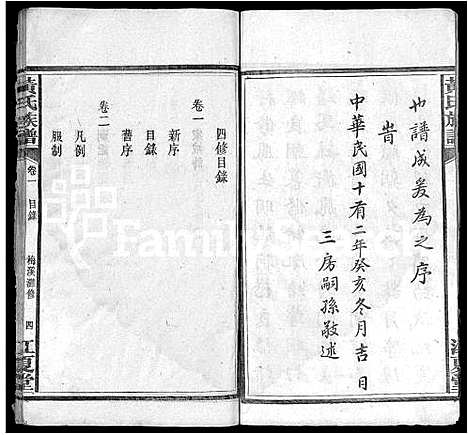 黃氏族譜
也譜成爰為之序
旹
中華民國十有二年癸亥冬月吉日
三房嗣孫敬述
江夏堂
四修目錄
卷一
新序
目錄
舊序
卷二
凡例
服制
黃氏族譜
卷一
目錄
梅溪灘修
四
江夏堂